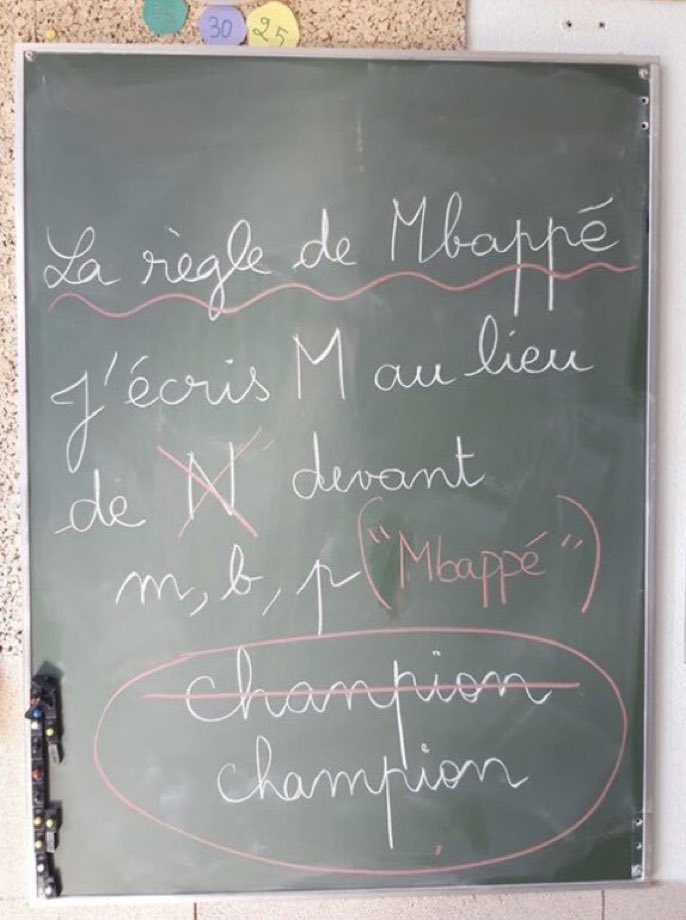 30
25
La règle de Mbappé
J'écris M au lieu
de N devant
m, b, p ("Mbappé")
chanpion
champion